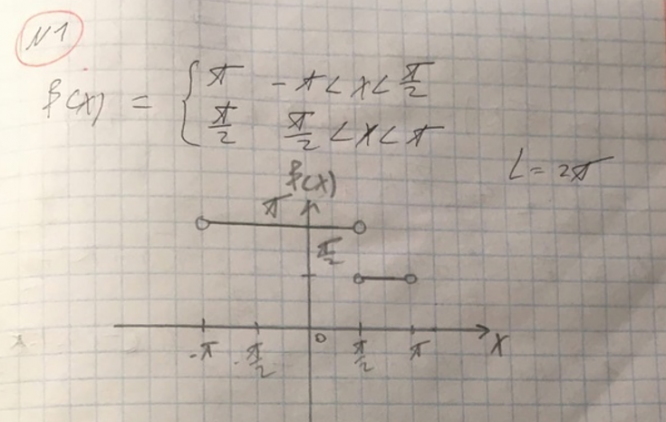 N1
f(x) = { π  -π < x < π/2
π/2  π/2 < x < π
L = 2π
f(x)
π
π/2
-π  -π/2  0  π/2  π  x